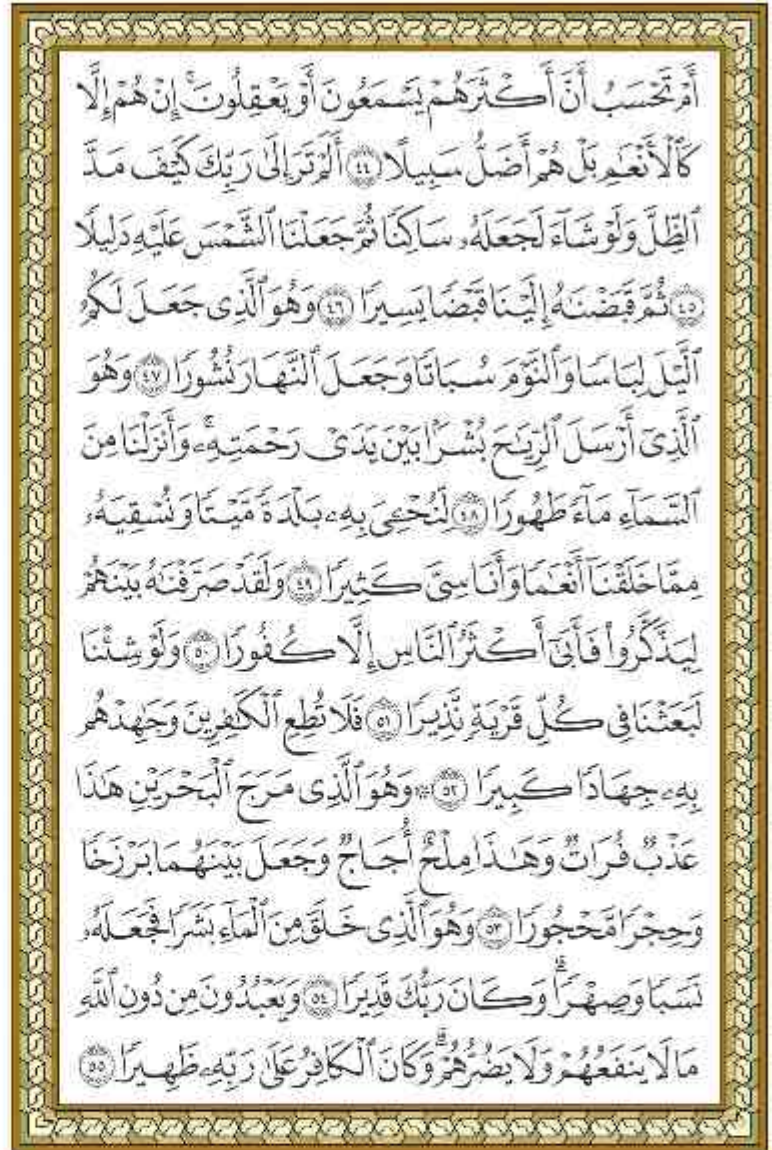 أَمْ تَحْسَبُ أَنَّ أَكْثَرَهُمْ يَسْمَعُونَ أَوْ يَعْقِلُونَ ۚ إِنْ هُمْ إِلَّا
كَٱلْأَنْعَٰمِ بَلْ هُمْ أَضَلُّ سَبِيلًا ٤٤ أَلَمْ تَرَ إِلَىٰ رَبِّكَ كَيْفَ مَدَّ
ٱلظِّلَّ وَلَوْ شَآءَ لَجَعَلَهُۥ سَاكِنًا ثُمَّ جَعَلْنَا ٱلشَّمْسَ عَلَيْهِ دَلِيلًا
٤٥ ثُمَّ قَبَضْنَٰهُ إِلَيْنَا قَبْضًا يَسِيرًا ٤٦ وَهُوَ ٱلَّذِى جَعَلَ لَكُمُ
ٱلَّيْلَ لِبَاسًا وَٱلنَّوْمَ سُبَاتًا وَجَعَلَ ٱلنَّهَارَ نُشُورًا ٤٧ وَهُوَ
ٱلَّذِىٓ أَرْسَلَ ٱلرِّيَٰحَ بُشْرًۢا بَيْنَ يَدَىْ رَحْمَتِهِۦ ۚ وَأَنزَلْنَا مِنَ
ٱلسَّمَآءِ مَآءً طَهُورًا ٤٨ لِّنُحْۦِىَ بِهِۦ بَلْدَةً مَّيْتًا وَنُسْقِيَهُۥ
مِمَّا خَلَقْنَآ أَنْعَٰمًا وَأَنَاسِىَّ كَثِيرًا ٤٩ وَلَقَدْ صَرَّفْنَٰهُ بَيْنَهُمْ
لِيَذَّكَّرُوا۟ فَأَبَىٰٓ أَكْثَرُ ٱلنَّاسِ إِلَّا كُفُورًا ٥٠ وَلَوْ شِئْنَا
لَبَعَثْنَا فِى كُلِّ قَرْيَةٍ نَّذِيرًا ٥١ فَلَا تُطِعِ ٱلْكَٰفِرِينَ وَجَٰهِدْهُم
بِهِۦ جِهَادًا كَبِيرًا ٥٢ ۞ وَهُوَ ٱلَّذِى مَرَجَ ٱلْبَحْرَيْنِ هَٰذَا
عَذْبٌ فُرَاتٌ وَهَٰذَا مِلْحٌ أُجَاجٌ وَجَعَلَ بَيْنَهُمَا بَرْزَخًا
وَحِجْرًا مَّحْجُورًا ٥٣ وَهُوَ ٱلَّذِى خَلَقَ مِنَ ٱلْمَآءِ بَشَرًا فَجَعَلَهُۥ
نَسَبًا وَصِهْرًا ۗ وَكَانَ رَبُّكَ قَدِيرًا ٥٤ وَيَعْبُدُونَ مِن دُونِ ٱللَّهِ
مَا لَا يَنفَعُهُمْ وَلَا يَضُرُّهُمْ ۗ وَكَانَ ٱلْكَافِرُ عَلَىٰ رَبِّهِۦ ظَهِيرًا ٥٥